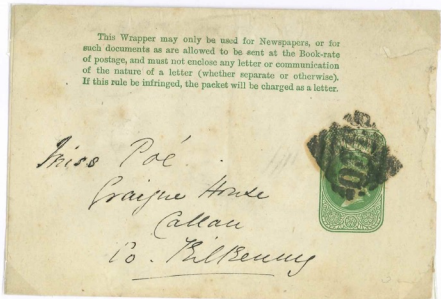 This Wrapper may only be used for Newspapers, or for
such documents as are allowed to be sent at the Book-rate
of postage, and must not enclose any letter or communication
of the nature of a letter (whether separate or otherwise).
If this rule be infringed, the packet will be charged as a letter.
Miss Poé
Graigue House
Callan
Co. Kilkenny